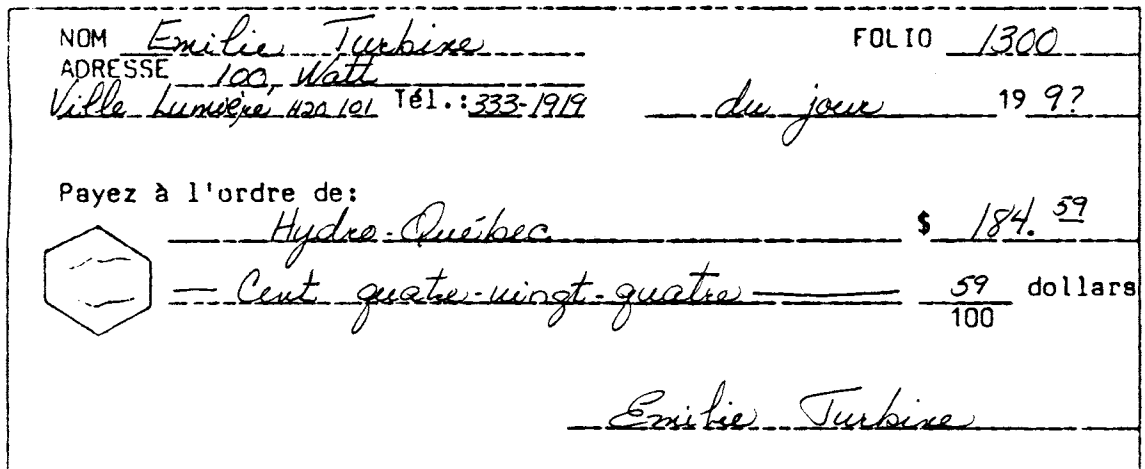 NOM Emilie Turbine FOLIO 1300
ADRESSE 100, Watt
Ville Lumière H2O 1O1 Tél.: 333-1919 du jour 19 9?
Payez à l'ordre de:
Hydro-Québec $ 184.59
— Cent quatre-vingt-quatre — 59/100 dollars
Emilie Turbine